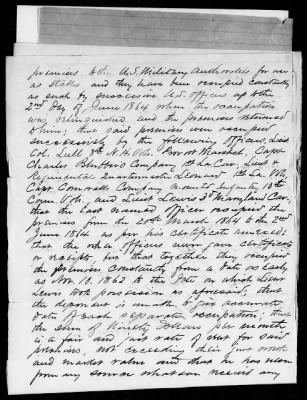 premises to the U.S. Military Authorities for use
as stables and they have been occupied constantly
as such by successive U.S. officers up to the
2nd day of June 1864 when the occupation
was relinquished and the premises returned
to him; that said premises were occupied
successively by the following officers, Lieut
Col. Lull 8th N.H. Vols. Provost Marshal, Capt
Charles Company 1st La Cav, Lieut &
Regimental Quartermaster Leonard 1st La. Vols,
Capt Company Mounted Infantry, 13th
Conn. Vols, and Lieut Lewis 3d Maryland Cav,
that the last named officer occupied the
premises from the 20th March 1864 to the 2nd
June 1864 as per his certificate annexed:
that the other officers never gave certificates
or receipts, but that together they occupied
the premises constantly from a date as early
as Nov. 10. 1862 to the date on which Lieut
Lewis took possession as aforesaid, that
the deponent is unable to give accurate
date of each separate occupation; that
the sum of Ninety Dollars per month
is a fair and just rate of rent for said
premises, not exceeding their just worth
and market value and that he has never
from any source whatever received any